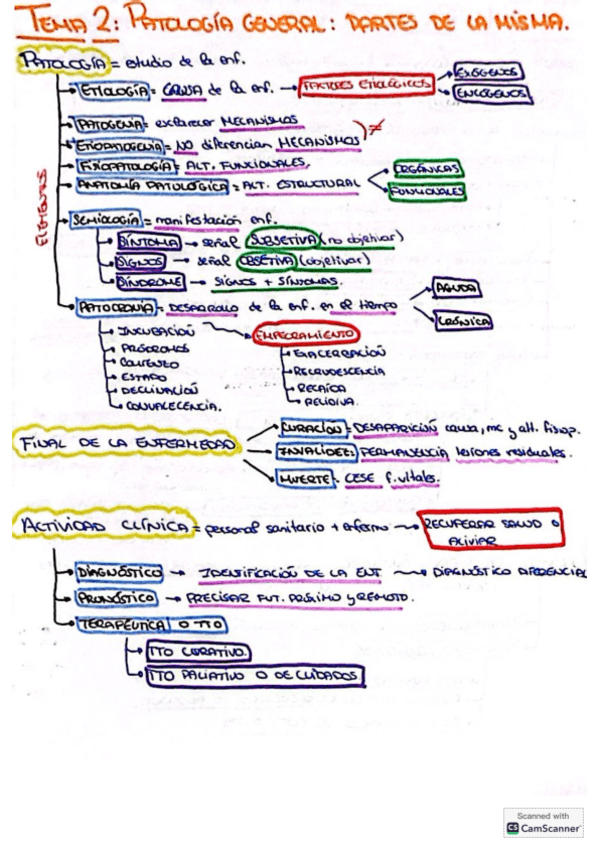 TEMA 2: PATOLOGÍA GENERAL: PARTES DE LA MISMA.
PATOLOGÍA = estudio de la enf.
ELEMENTOS
ETIOLOGÍA = CAUSA de la enf. → FACTORES ETIOLÓGICOS
EXÓGENOS
ENDÓGENOS
PATOGENIA = esclarecer MECANISMOS
ETIOPATOGENIA = NO diferencian MECANISMOS ) ≠
FISIOPATOLOGÍA = ALT. FUNCIONALES.
ANATOMÍA PATOLÓGICA = ALT. ESTRUCTURAL
ORGÁNICAS
FUNCIONALES
SEMIOLOGÍA = manifestación enf.
SÍNTOMA → señal SUBJETIVA (no objetivar)
SIGNOS → señal OBJETIVA (objetivar)
SÍNDROME → SIGNOS + SÍNTOMAS.
PATOCRONIA = DESARROLLO de la enf. en el tiempo
AGUDA
CRÓNICA
INCUBACIÓN
PRÓDROMOS
COMIENZO
ESTADO
DECLINACIÓN
CONVALECENCIA.
EMPEORAMIENTO
EXACERBACIÓN
RECRUDESCENCIA
RECAÍDA
RECIDIVA.
FINAL DE LA ENFERMEDAD
CURACIÓN = DESAPARICIÓN causa, mc y alt. fisiop.
INVALIDEZ: PERMANENCIA lesiones residuales.
MUERTE: CESE f. vitales.
ACTIVIDAD CLÍNICA = personal sanitario + enfermo → RECUPERAR SALUD O ALIVIAR
DIAGNÓSTICO → IDENTIFICACIÓN DE LA ENF → DIAGNÓSTICO DIFERENCIAL
PRONÓSTICO → PRECISAR FUT. PRÓXIMO y REMOTO.
TERAPÉUTICA O TTO
TTO CURATIVO.
TTO PALIATIVO O DE CUIDADOS.
Scanned with
CS CamScanner